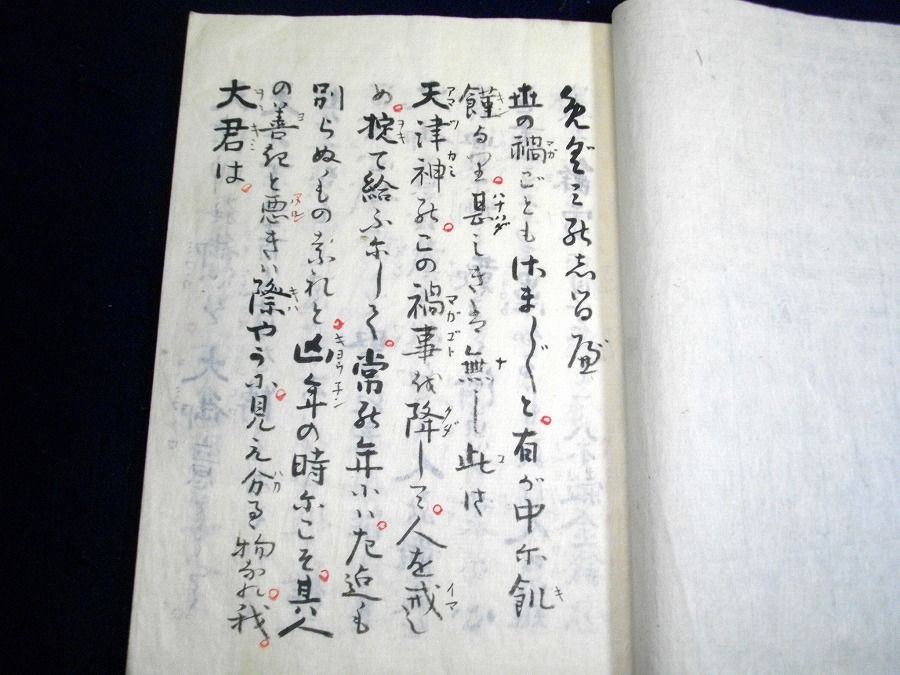 世の禍ごともさま〴〵と。有が中に飢
饉より。甚しきは無し此は
天津神の。この禍事を降して。人を戒し
め。掟て給ふにして。常の年にハ。左迄も
別らぬものなれと。凶年の時にこそ。其人
の善きと悪きハ際やかに。見え分る物なれ。我。
大君は。